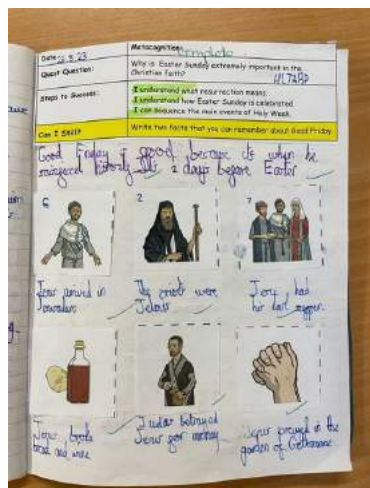 Date: 2.5.23
Metacognition:
complete
Quest Question:
Why is Easter Sunday extremely important in the
Christian faith?
HLTARP
Steps to Success:
I understand what resurrection means.
I understand how Easter Sunday is celebrated.
I can sequence the main events of Holy Week.
Can I Still?
Write two facts that you can remember about Good Friday.
Good Friday is good because its when he
2 days before Easter
6
2
7
Jesus arrived in
The priests were
Jesus had
Jerusalem
Jelous
his last supper.
Jesus broke
Judas betrayed
Jesus prayed in the
bread and wine
Jesus for money
garden of Gethsemane